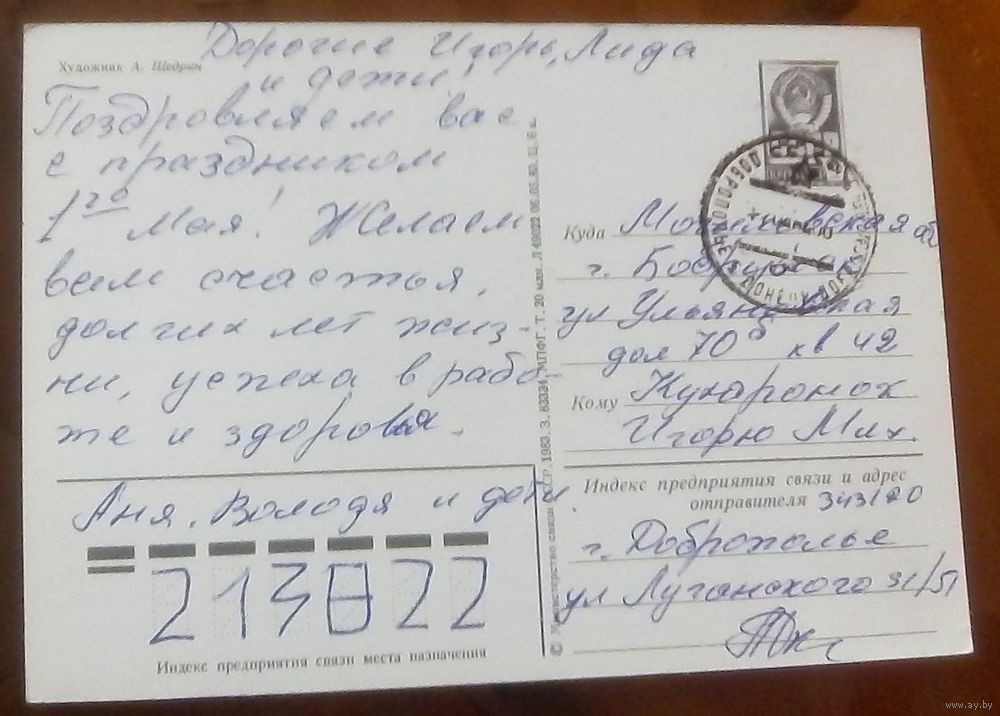 Художник А. Щедрин
Дорогие Игорь, Лида
и дети!
Поздровляем вас
с праздником
1го Мая! Желаем
вам счастья,
долгих лет жиз-
ни, успеха в рабо-
те и здоровья.
Аня, Володя и дети
213822
Индекс предприятия связи места назначения
© Министерство связи СССР, 1983. З. 83334. МПФГ. Т. 20 млн. 06.05.83. Ц. 6 к.
Куда Могилевская об
г. Бобруйск
ул Ульяновская
дом 70б кв 42
Кому
Игорю Мих.
Индекс предприятия связи и адрес
отправителя 343120
г. Доброполье
ул Луганского 31/51
ДОБРОПОЛЬЕ ДОНЕЦК
www.ay.by